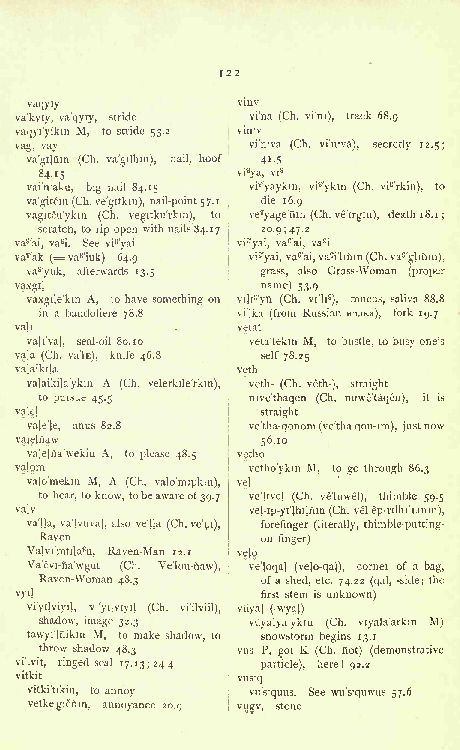 122
vaqyiy
va'kyiy, va'qyiy, stride
vaqyi'yikın M, to stride 53.2
vag, vay
va'gılŋın (Ch. va'gılhın), nail, hoof
84.15
vai'ñaku, big nail 84.15
va'gitčın (Ch. ve'gıtkın), nail-point 57.1
vagıtču'ykın (Ch. vegıtku'rkın), to
scratch, to rip open with nails 84.17
vaᵋ'ai, vaᵋi. See viᵋ'yai
vaᵋ'ak (= vaᵋ'iuk) 64.9
vaᵋ'yuk, afterwards 13.5
vaxgıļ
vaxgıle'kın A, to have something on
in a bandoliere 78.8
vaļı
vaļı'vaļ, seal-oil 80.10
vaļa (Ch. va'lE), knife 46.8
vaļaikıļa
vaļaikıļa'ykın A (Ch. velerkıle'rkın),
to pursue 45.5
vaļeļ
vaļe'ļe, anus 82.8
vaļeļñaw
vaļeļña'wekın A, to please 48.5
vaļom
vaļo'mekın M, A (Ch. valo'mırkın),
to hear, to know, to be aware of 39.7
va'ļv
va'ļļa, va'ļvuvaļ, also ve'ļļa (Ch. ve'ļıı),
Raven
Vaļvı'mtıļaᵋn, Raven-Man 12.1
Va'čvı-ña'wgut (Ch. Ve'lou-ñaw),
Raven-Woman 48.3
vyıļ
vi'yıļviyıļ, vı'yıļvıyıļ (Ch. vi'ilviil),
shadow, image 32.3
tawyı'ļñikın M, to make shadow, to
throw shadow 48.3
vi'ļvit, ringed seal 17.13; 24.4
vitkit
vitki'tıkın, to annoy
vetkegıčñın, annoyance 20.9
vinv
vi'na (Ch. vi'nı), track 68.9
vin·v
vi'n·va (Ch. vi'n·vä), secretly 12.5;
41.5
viᵋya, viᵋ
viᵋ'yaykın, viᵋ'ykın (Ch. viᵋ'rkin), to
die 16.9
veᵋyage'ñın (Ch. vê'ırgın), death 18.1;
20.9; 47.2
viᵋ'yai, vaᵋ'ai, vaᵋi
viᵋ'yai, vaᵋ'ai, vaᵋi'lŋın (Ch. vaᵋ'glıñın),
grass, also Grass-Woman (proper
name) 53.9
viļıᵋ'yñ (Ch. vı'lıᵋ), mucus, saliva 88.8
vi'ļka (from Russian вилка), fork 19.7
vetat
veta'tekın M, to bustle, to busy one's
self 78.25
veth
veth- (Ch. vêth-), straight
nıve'thaqen (Ch. nuwê'täqên), it is
straight
ve'tha-qonom (ve'tha qun-ım), just now
56.10
vetho
vetho'ykın M, to go through 86.3
veļ
ve'lıveļ (Ch. vê'luwêl), thimble 59.5
veļ-ıp-yı'lhıļŋın (Ch. vêl êp-rılhı'lının),
forefinger (literally, thimble-putting-
on finger)
veļo
ve'ļoqaļ (veļo-qaļ), corner of a bag,
of a shed, etc. 74.22 (qaļ, -side; the
first stem is unknown)
vüyaļ (-wyaļ)
vüyaļyaykın (Ch. vıyala'arkın M)
snowstorm begins 13.1
vus P, got K (Ch. ñot) (demonstrative
particle), here! 92.2
vus·q
vu's·quus. See wu's·quwus 57.6
vugv, stone